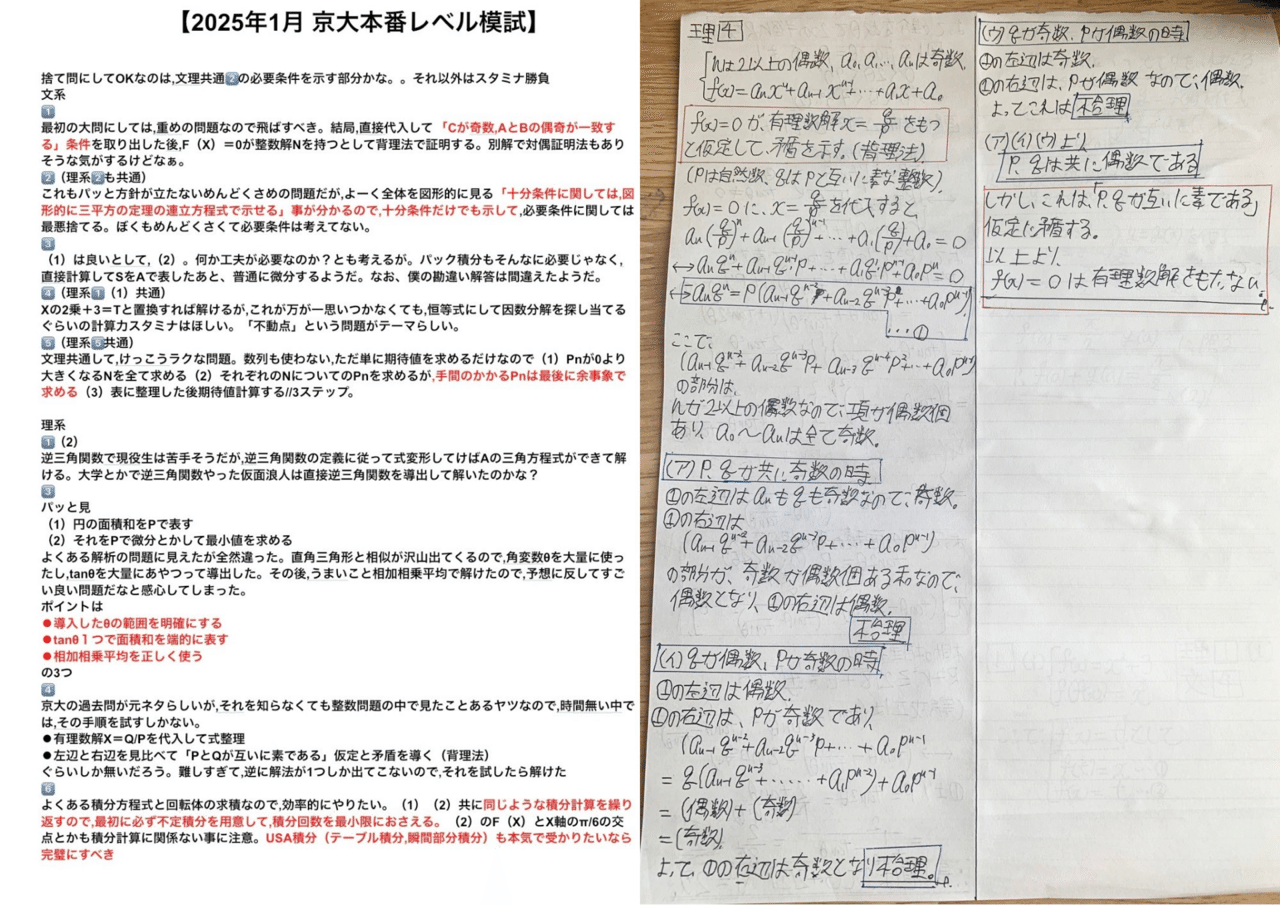 【2025年1月 京大本番レベル模試】
捨て問にしてOKなのは,文理共通2️⃣の必要条件を示す部分かな。。それ以外はスタミナ勝負
文系
1️⃣
最初の大問にしては,重めの問題なので飛ばすべき。結局,直接代入して「Cが奇数,AとBの偶奇が一致す
る」条件を取り出した後,F（X）＝0が整数解Nを持つとして背理法で証明する。別解で対偶証明法もあり
そうな気がするけどなぁ。
2️⃣（理系2️⃣も共通）
これもパッと方針が立たないめんどくさめの問題だが,よーく全体を図形的に見る「十分条件に関しては,図
形的に三平方の定理の連立方程式で示せる」事が分かるので,十分条件だけでも示して,必要条件に関しては
最悪捨てる。ぼくもめんどくさくて必要条件は考えてない。
3️⃣
（1）は良いとして,（2）。何か工夫が必要なのか？とも考えるが。パック積分もそんなに必要じゃなく,
直接計算してSをAで表したあと、普通に微分するようだ。なお、僕の勘違い解答は間違えたようだ。
4️⃣（理系1️⃣（1）共通）
Xの2乗＋3＝Tと置換すれば解けるが,これが万が一思いつかなくても,恒等式にして因数分解を探し当てる
ぐらいの計算力スタミナはほしい。「不動点」という問題がテーマらしい。
5️⃣（理系5️⃣共通）
文理共通して,けっこうラクな問題。数列も使わない,ただ単に期待値を求めるだけなので（1）Pnが0より
大きくなるNを全て求める（2）それぞれのNについてのPnを求めるが,手間のかかるPnは最後に余事象で
求める（3）表に整理した後期待値計算する//3ステップ。
理系
1️⃣（2）
逆三角関数で現役生は苦手そうだが,逆三角関数の定義に従って式変形してけばAの三角方程式ができて解
ける。大学とかで逆三角関数やった仮面浪人は直接逆三角関数を導出して解いたのかな？
3️⃣
パッと見
（1）円の面積和をPで表す
（2）それをPで微分とかして最小値を求める
よくある解析の問題に見えたが全然違った。直角三角形と相似が沢山出てくるので,角変数θを大量に使っ
たし,tanθを大量にあやつって導出した。その後,うまいこと相加相乗平均で解けたので,予想に反してすご
い良い問題だなと感心してしまった。
ポイントは
●導入したθの範囲を明確にする
●tanθ１つで面積和を端的に表す
●相加相乗平均を正しく使う
の3つ
4️⃣
京大の過去問が元ネタらしいが,それを知らなくても整数問題の中で見たことあるヤツなので,時間無い中で
は,その手順を試すしかない。
●有理数解X＝Q/Pを代入して式整理
●左辺と右辺を見比べて「PとQが互いに素である」仮定と矛盾を導く（背理法）
ぐらいしか無いだろう。難しすぎて,逆に解法が1つしか出てこないので,それを試したら解けた
6️⃣
よくある積分方程式と回転体の求積なので,効率的にやりたい。（1）（2）共に同じような積分計算を繰り
返すので,最初に必ず不定積分を用意して,積分回数を最小限におさえる。（2）のF（X）とX軸のπ/6の交
点とかも積分計算に関係ない事に注意。USA積分（テーブル積分,瞬間部分積分）も本気で受かりたいなら
完璧にすべき
理4
nは2以上の偶数、a₀, a₁, …, anは奇数.
f(x)= anxⁿ+ an-1 xⁿ⁻¹+…+a₁x+a₀
f(x)=0が、有理数解x= q/pをもつ
と仮定して、矛盾を示す。(背理法).
(Pは自然数, qはPと互いに素な整数).
f(x)=0に、x= q/pを代入すると
an(q/p)ⁿ+ an-1 (q/p)ⁿ⁻¹+…+a₁(q/p)+a₀=0
↔anqⁿ+an-1qⁿ⁻¹p+…+a₁qpⁿ⁻¹+a₀pⁿ=0
↔-anqⁿ=P(an-1qⁿ⁻¹+an-2qⁿ⁻²p+…+a₀pⁿ⁻¹)
…①
ここで、
(an-1qⁿ⁻¹+an-2qⁿ⁻²p+an-3qⁿ⁻³p²+…+a₀pⁿ⁻¹)
の部分は、
nが2以上の偶数なので、項が偶数個
あり、a₀〜anは全て奇数.
(ア) P, qが共に奇数の時
①の左辺はanもqも奇数なので、奇数。
①の右辺は
(an-1qⁿ⁻²+an-2qⁿ⁻³p+…+a₀pⁿ⁻¹)
の部分が、奇数が偶数個ある和なので、
偶数となり、①の右辺は偶数.
不合理
(イ) qが偶数、Pが奇数の時
①の左辺は偶数.
①の右辺は、Pが奇数であり、
(an-1qⁿ⁻²+an-2qⁿ⁻³p+…+a₀pⁿ⁻¹
= q(an-1qⁿ⁻³+……+a₁pⁿ⁻²)+a₀pⁿ⁻¹
= (偶数)+(奇数)
=(奇数).
よって、①の右辺は奇数となり不合理。
(ウ) qが奇数、Pが偶数の時
①の左辺は奇数.
①の右辺は、Pが偶数なので、偶数.
よってこれは不合理
(ア)(イ)(ウ)より
P, qは共に偶数である
しかし、これは「P, qが互いに素である」
仮定に矛盾する。
以上より、
f(x)=0は有理数解をもたない。